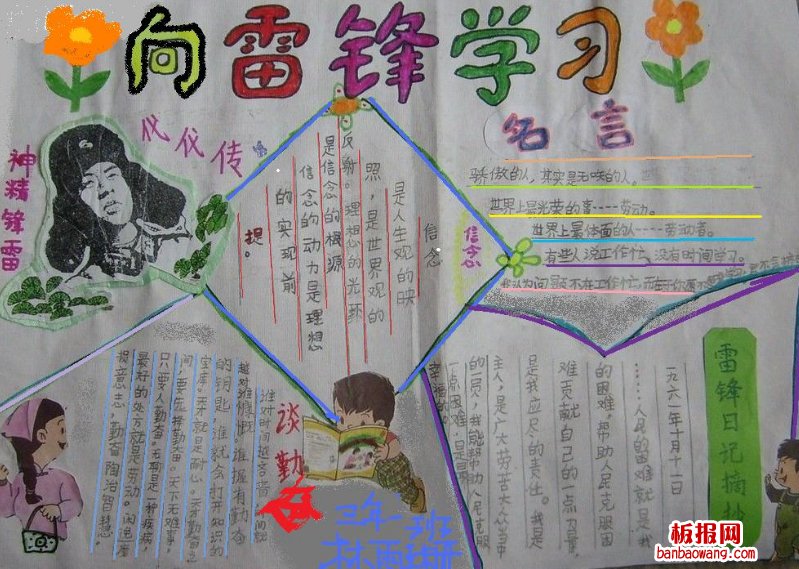 向雷锋学习
雷锋精神
代代传
名言
骄傲的人,其实是无味的人。
世界上最光荣的事----劳动。
世界上最体面的人----劳动者。
有些人说工作忙、没有时间学习。
我认为问题不在工作忙,而在于你愿不愿意
信念
信念
是人生观的映
照,是世界观的
反射。理想的光环
是信念的根源
信念的动力是理想
的实现前
提。
谈勤
谁对时间越吝啬,时间就
越对谁慷慨。谁握有勤奋
的钥匙,谁就会打开知识的
宝库。天才就是耐心。天才勤奋
只要人勤奋。无聊是一种疾病,
最好的处方就是劳动。
毅意志,勤奋陶治智慧。
雷锋日记摘抄
一九六一年十月十二日
……人民的困难就是我
的困难,帮助人民克服困
难贡献自己的一点力量,
是我应尽的责任。我是
主人,是广大劳苦大众当中
的一员,我能帮助人民克服
一点困难,是最
幸福的
三年一班
板报网
banbaowang.com